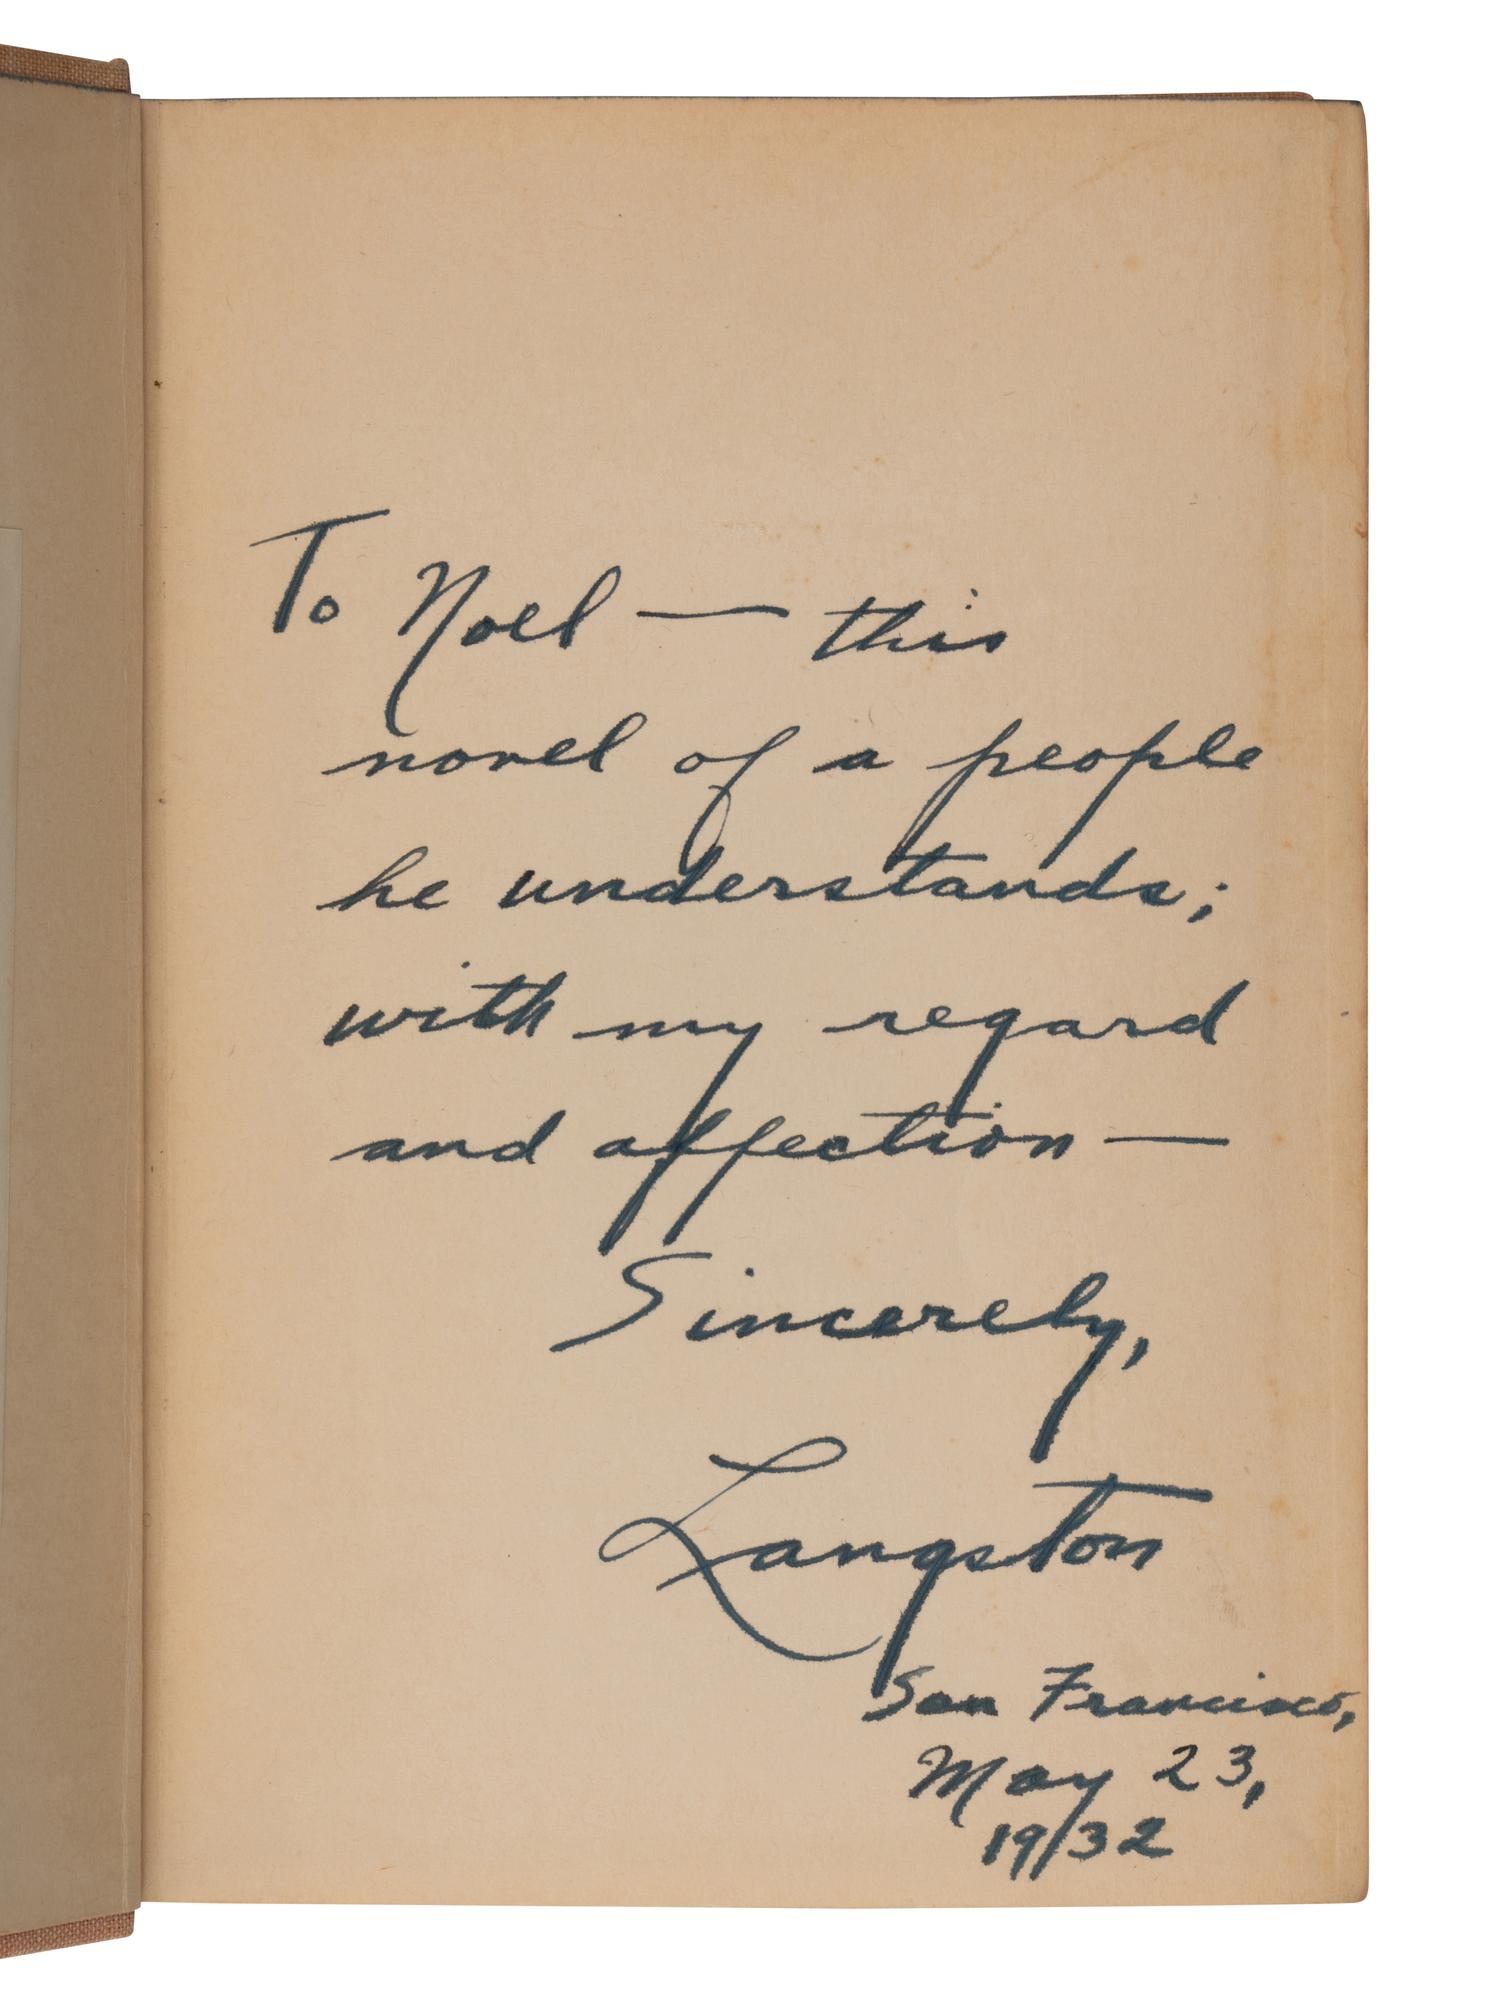 To Noel — this
novel of a people
he understands;
with my regard
and affection —
Sincerely,
Langston
San Francisco,
May 23,
1932